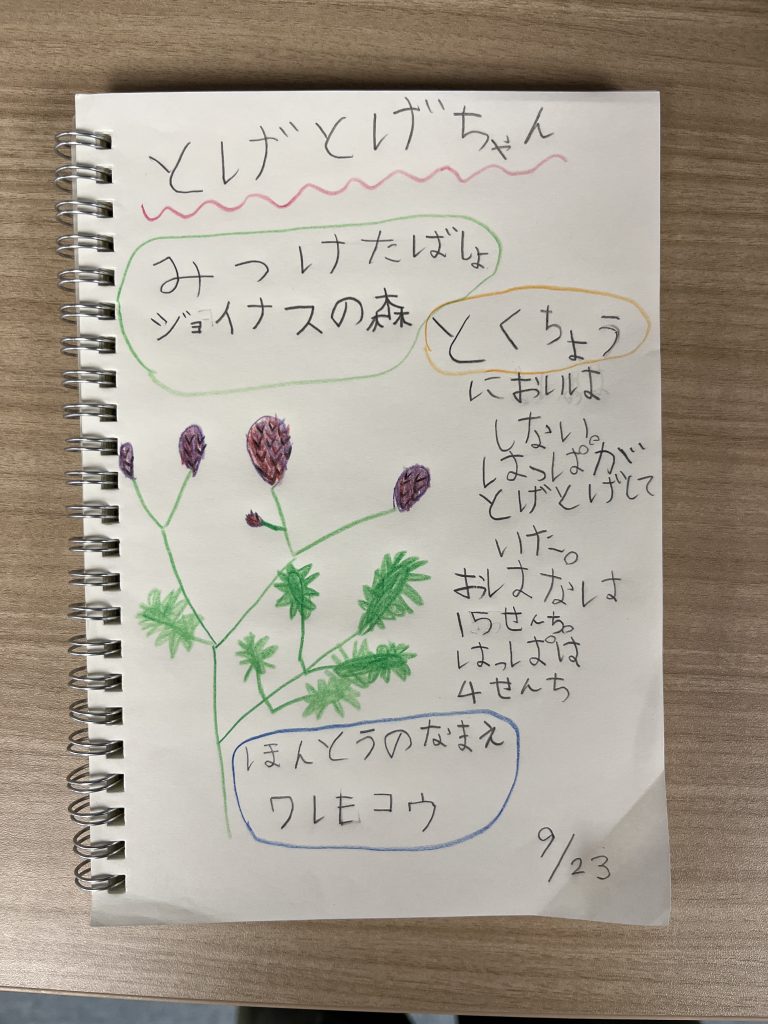 とげとげちゃん
みつけたばしょ
ジョイナスの森
とくちょう
においは
しない。
はっぱが
とげとげして
いた。
おはなは
15せんち。
はっぱは
4せんち
ほんとうのなまえ
ワレモコウ
9/23